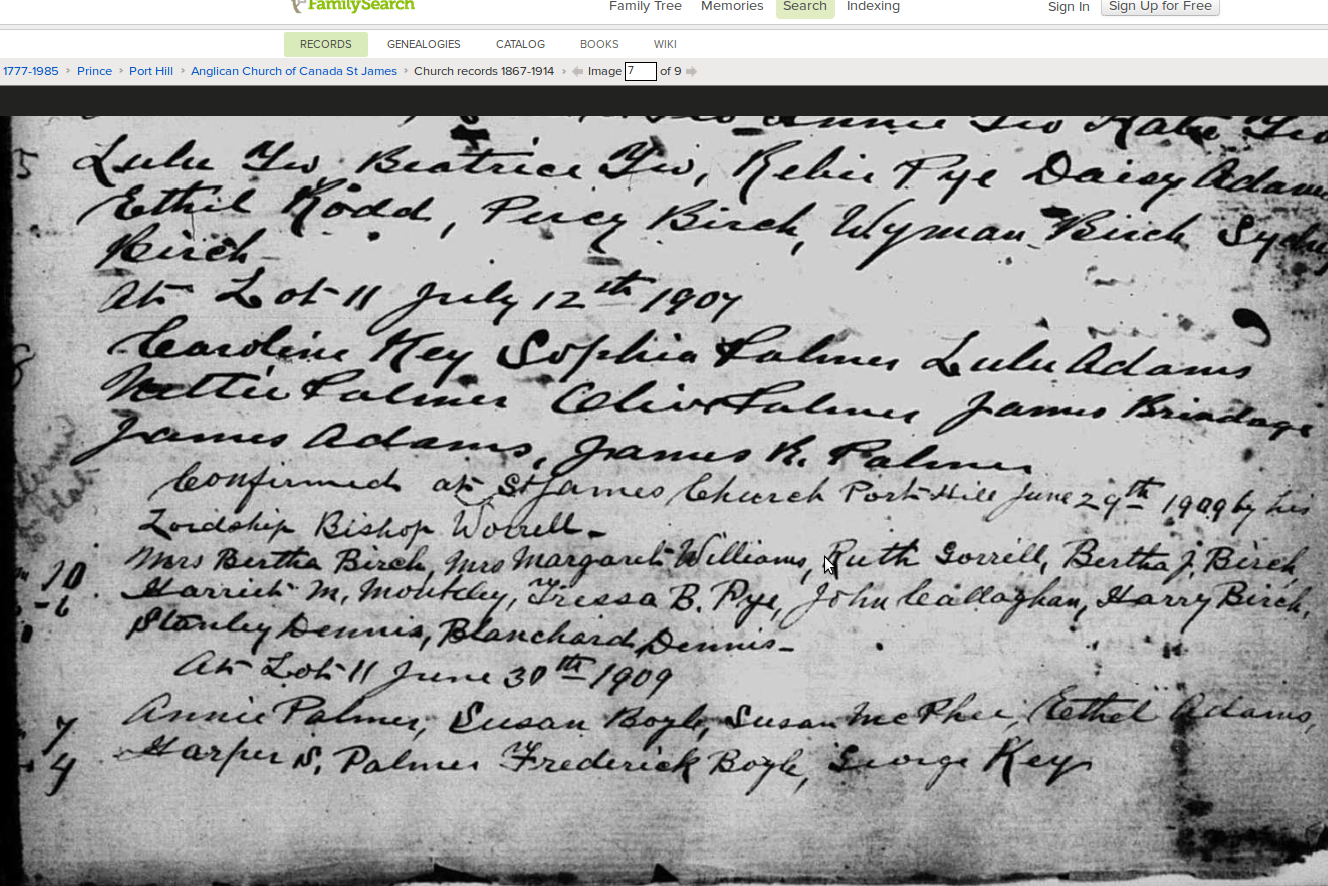 FamilySearch
Family Tree Memories Search Indexing Sign In Sign Up for Free
RECORDS GENEALOGIES CATALOG BOOKS WIKI
1777-1985 › Prince › Port Hill › Anglican Church of Canada St James › Church records 1867-1914 › Image 7 of 9
Annie Yeo Katie Yeo
5 Lulu Yeo, Beatrice Yeo, Relie Pye Daisy Adams
Ethel Rodd, Percy Birch, Wyman Birch Sydney
Birch
At Lot 11 July 12th 1907
Caroline Key Sophia Palmer Lulu Adams
Nettie Palmer Olive Palmer James Brindage
James Adams, James R. Palmer
Confirmed at St James Church Port Hill June 29th 1909 by his
Lordship Bishop Worrell-
Mrs Bertha Birch, Mrs Margaret Williams, Ruth Gorrill, Bertha J. Birch
10 Harriet M, Tressa B. Pye, John Callaghan, Harry Birch,
-6 Stanley Dennis, Blanchard Dennis-
At Lot 11 June 30th 1909
7 Annie Palmer, Susan Boyle, Susan McPhee, Ethel Adams,
4 Harper S. Palmer Frederick Boyle, George Key